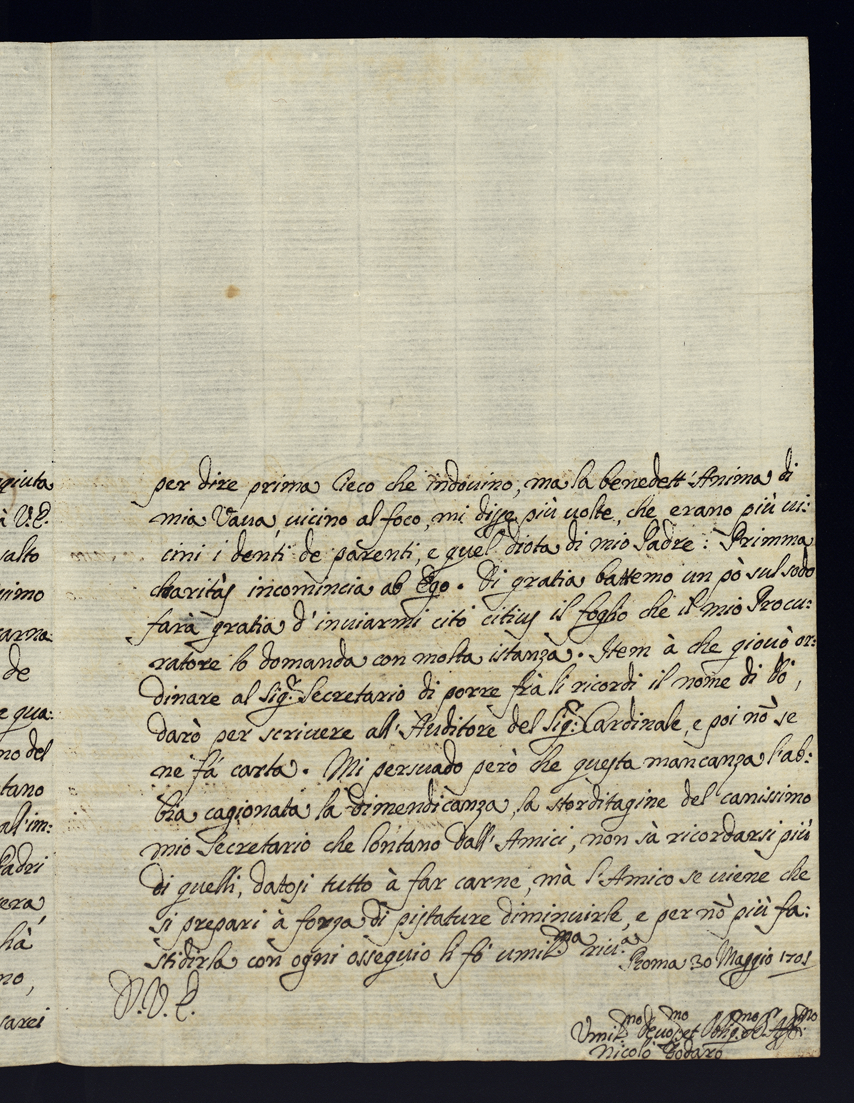 per dire prima Cieco che indovino, ma la benedett'Anima di
giuta
mia Vava, vicino al foco, mi disse più volte, che erano più vi:
à V.E.
cini i denti de parenti, e quel diota di mio Padre: Primma
salto
charitas incomincia ab Ego. Di gratia battemo un pò sul sodo
simo
farà gratia d'inviarmi citò citius il foglio che il mio Procu:
carna:
ratore lo domanda con molta istanza. Item à che giovò or:
de
dinare al Sig.r Secretario di porre frà li ricordi il nome di
e qua:
darò per scrivere all'Auditore del Sig.r Cardinale, e poi nò se
no del
ne fà carta. Mi persuado però che questa mancanza l'ab:
tano
bia cagionata la dimendicanza, la storditagine del carissimo
all'im:
mio Secretario che lontano dall'Amici, non sà ricordarsi più
Padri
di quelli, datosi tutto à far carne, mà l'Amico se viene che
vera,
si prepari à forza di pistature diminuirle, e per nò più fa:
hà
stidirla con ogni ossequio li fò umil.ma riv.a
no,
Roma 30 Maggio 1701
D.V.E.
sarei
Umil.mo Devo: et Oblig.mo
Nicolò Todaro